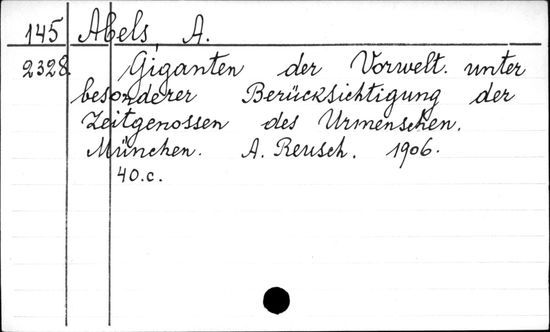 145 Abels, A.
2328. Giganten der Vorwelt. unter
besonderer Berücksichtigung der
Zeitgenossen des Urmenschen.
München. A. Reusch. 1906.
40.c.